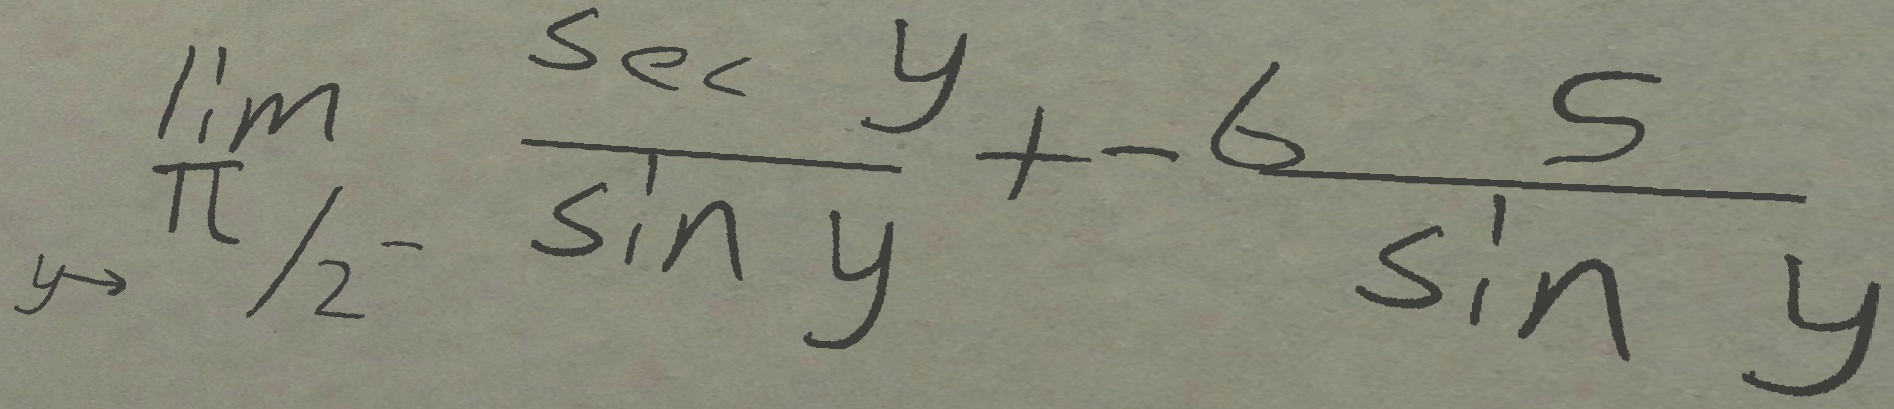 \lim_{y \to \pi/2^-} \frac{\sec y}{\sin y} + -6 \frac{5}{\sin y}